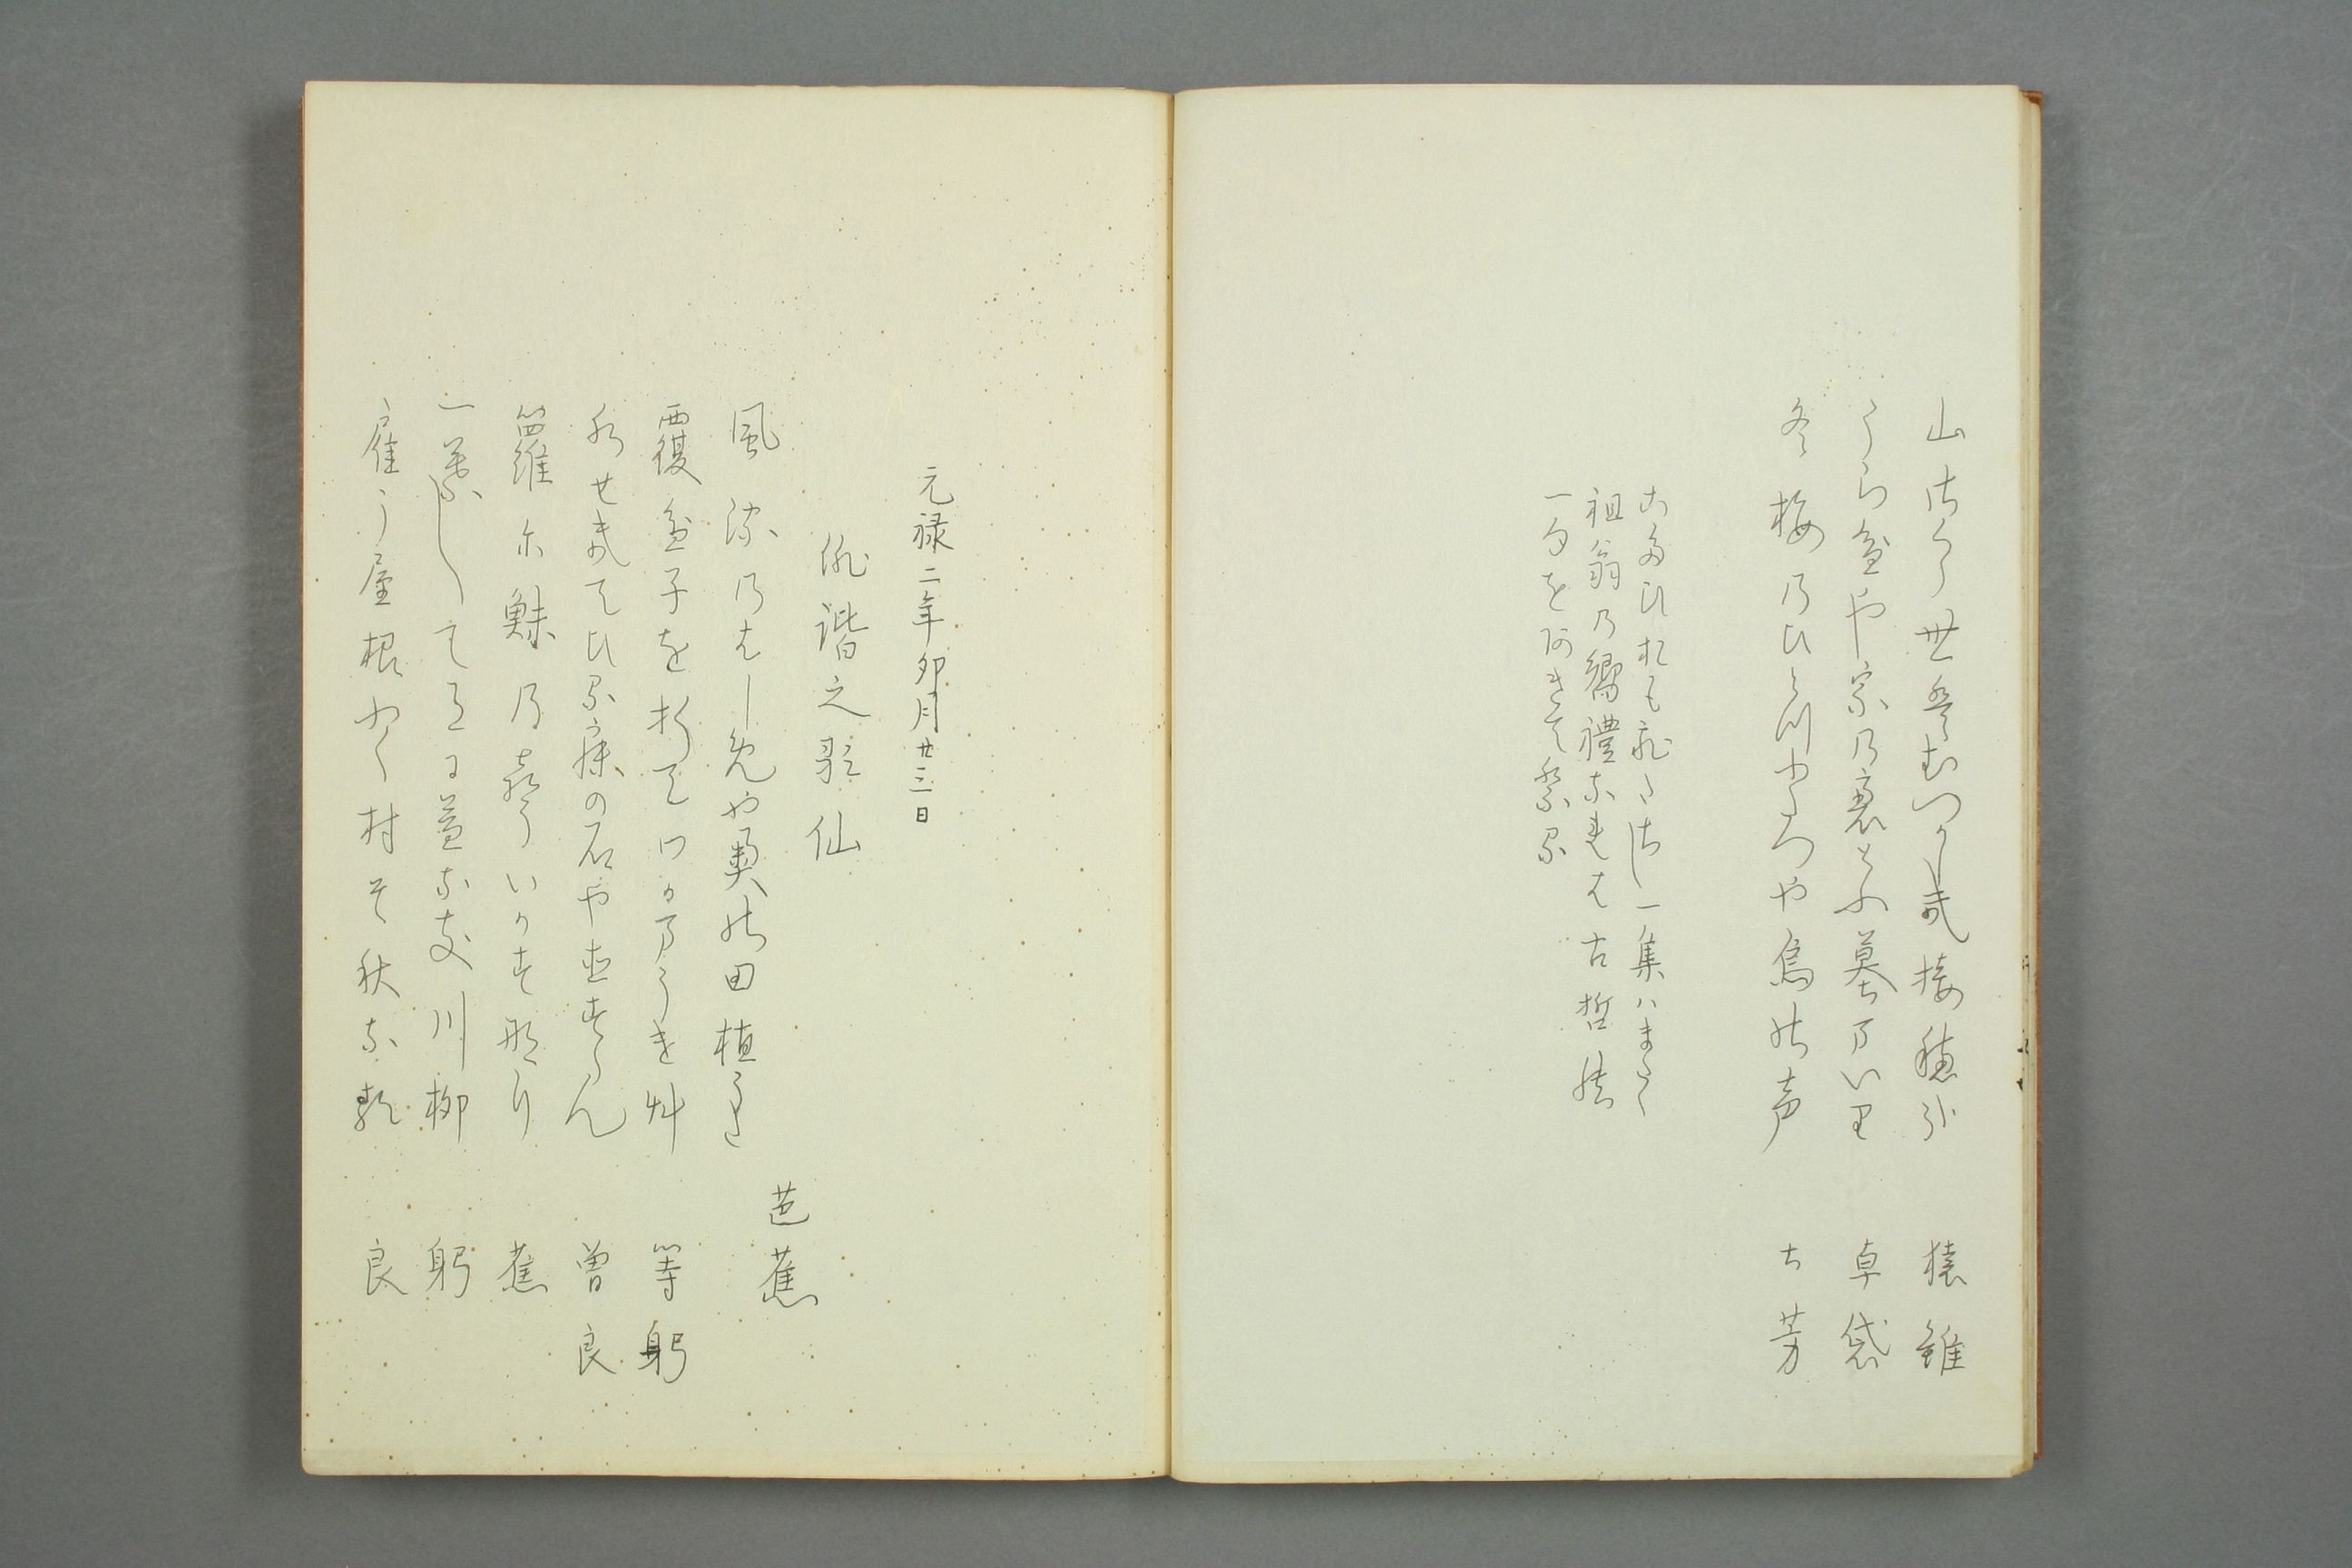 山さくら世はむつかしき接穂哉 猿雖
うら盆や宗の裏とふ墓まいり 卓袋
冬梅のひとつふたつや鳥の声 土芳
祖翁の響禮なれは古哲
一句を
元禄二年卯月廿三日
俳諧之歌仙
風流のはしめや奥の田植うた 芭蕉
覆盆子を折てわかまうけ草 等躬
水せきてひるねの石やなをすらん 曽良
籮に鰍の声いかす那り 蕉
一葉して月に益なき川柳 躬
雇に屋根ふく村そ秋なる 良